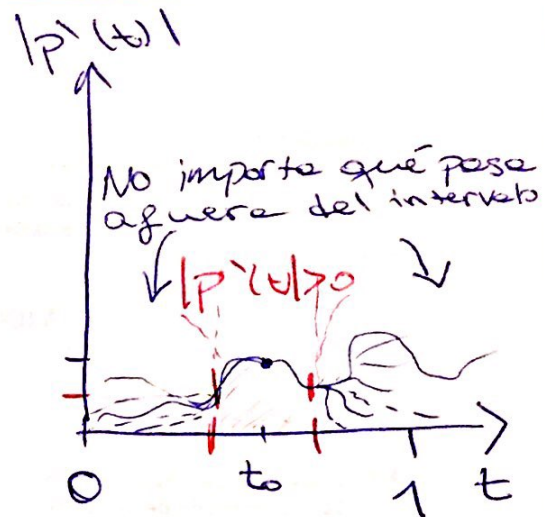 |p`(t)|
No importa qué pasa
afuera del intervalo
|p`(t)|>0
0 t₀ 1 t